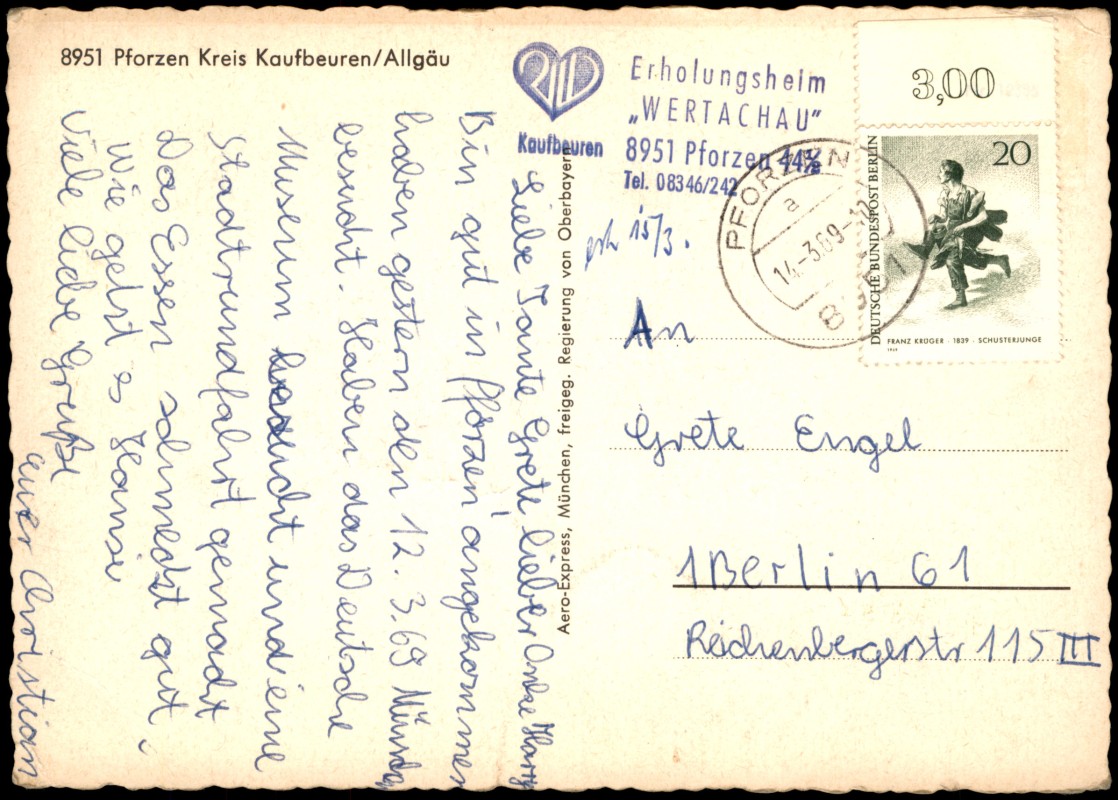 8951 Pforzen Kreis Kaufbeuren/Allgäu
Kaufbeuren
Erholungsheim
„WERTACHAU”
8951 Pforzen
Tel. 08346/242
15/3.
PFORZEN
a
14.-3.69-12
8951
3,00
20
DEUTSCHE BUNDESPOST BERLIN
FRANZ KRÜGER · 1839 · SCHUSTERJUNGE
1969
Aero-Express, München, freigeg. Regierung von Oberbayern
Liebe Tante Grete lieber Onkel
Bin gut in Pforzen angekommen
haben gestern den 12.3.69
besucht. Haben das Deutsche
Museum besucht und eine
Stadtrundfahrt gemacht
Das Essen schmeckt gut.
Wie geht s Hansi
Viele liebe Grüße
euer Christian
An
Grete Engel
1 Berlin 61
Reichenbergerstr 115 III